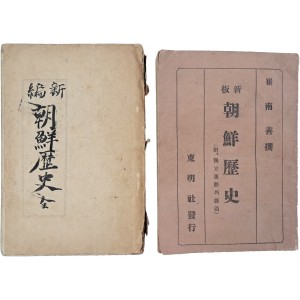 新編
朝鮮歷史 全
崔南善撰
新板
朝鮮歷史
東明社發行